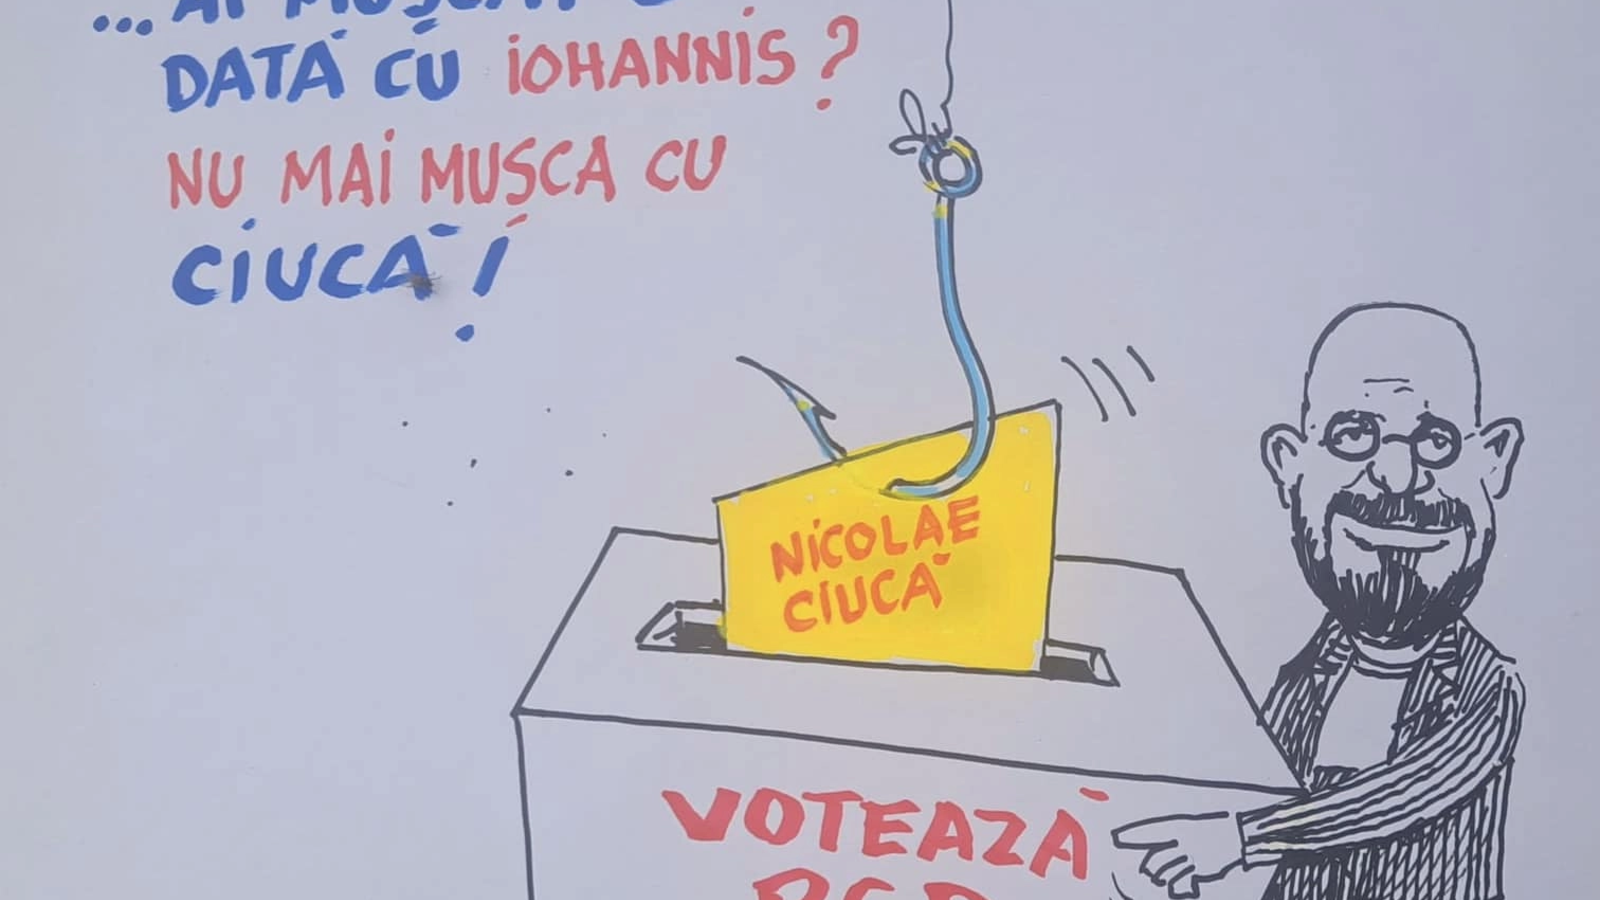 ... AI MUȘCAT O
DATĂ CU IOHANNIS ?
NU MAI MUȘCA CU
CIUCĂ !
NICOLAE
CIUCĂ
VOTEAZĂ